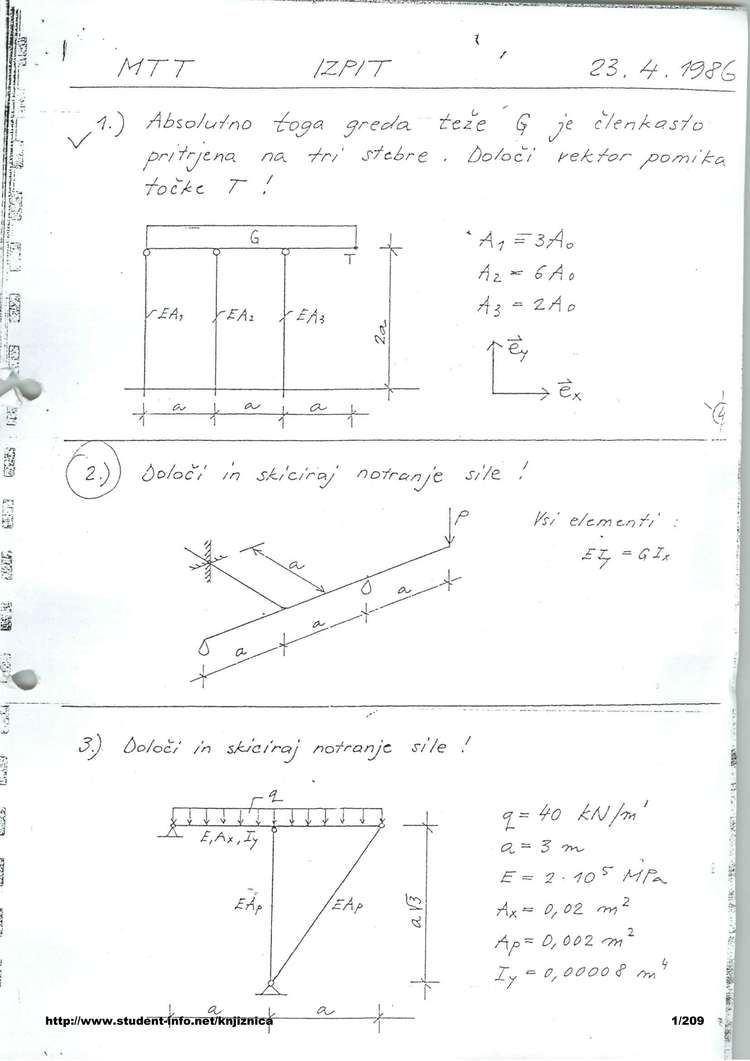 MTT IZPIT 23.4.1986
1.) Absolutno toga greda teže G je členkasto
pritrjena na tri stebre. Določi vektor pomika
točke T !
G
T
EA₁ EA₂ EA₃
2a
a a a
A₁ = 3A₀
A₂ = 6A₀
A₃ = 2A₀
e⃗y
e⃗x
4
2.) Določi in skiciraj notranje sile !
P
a
a
a
a
Vsi elementi :
EIy = GIx
3.) Določi in skiciraj notranje sile !
q
E, Ax, Iy
EAp EAp
a√3
a a
q = 40 kN/m'
a = 3 m
E = 2·10⁵ MPa
Ax = 0,02 m²
Ap = 0,002 m²
Iy = 0,00008 m⁴
http://www.student-info.net/knjiznica 1/209